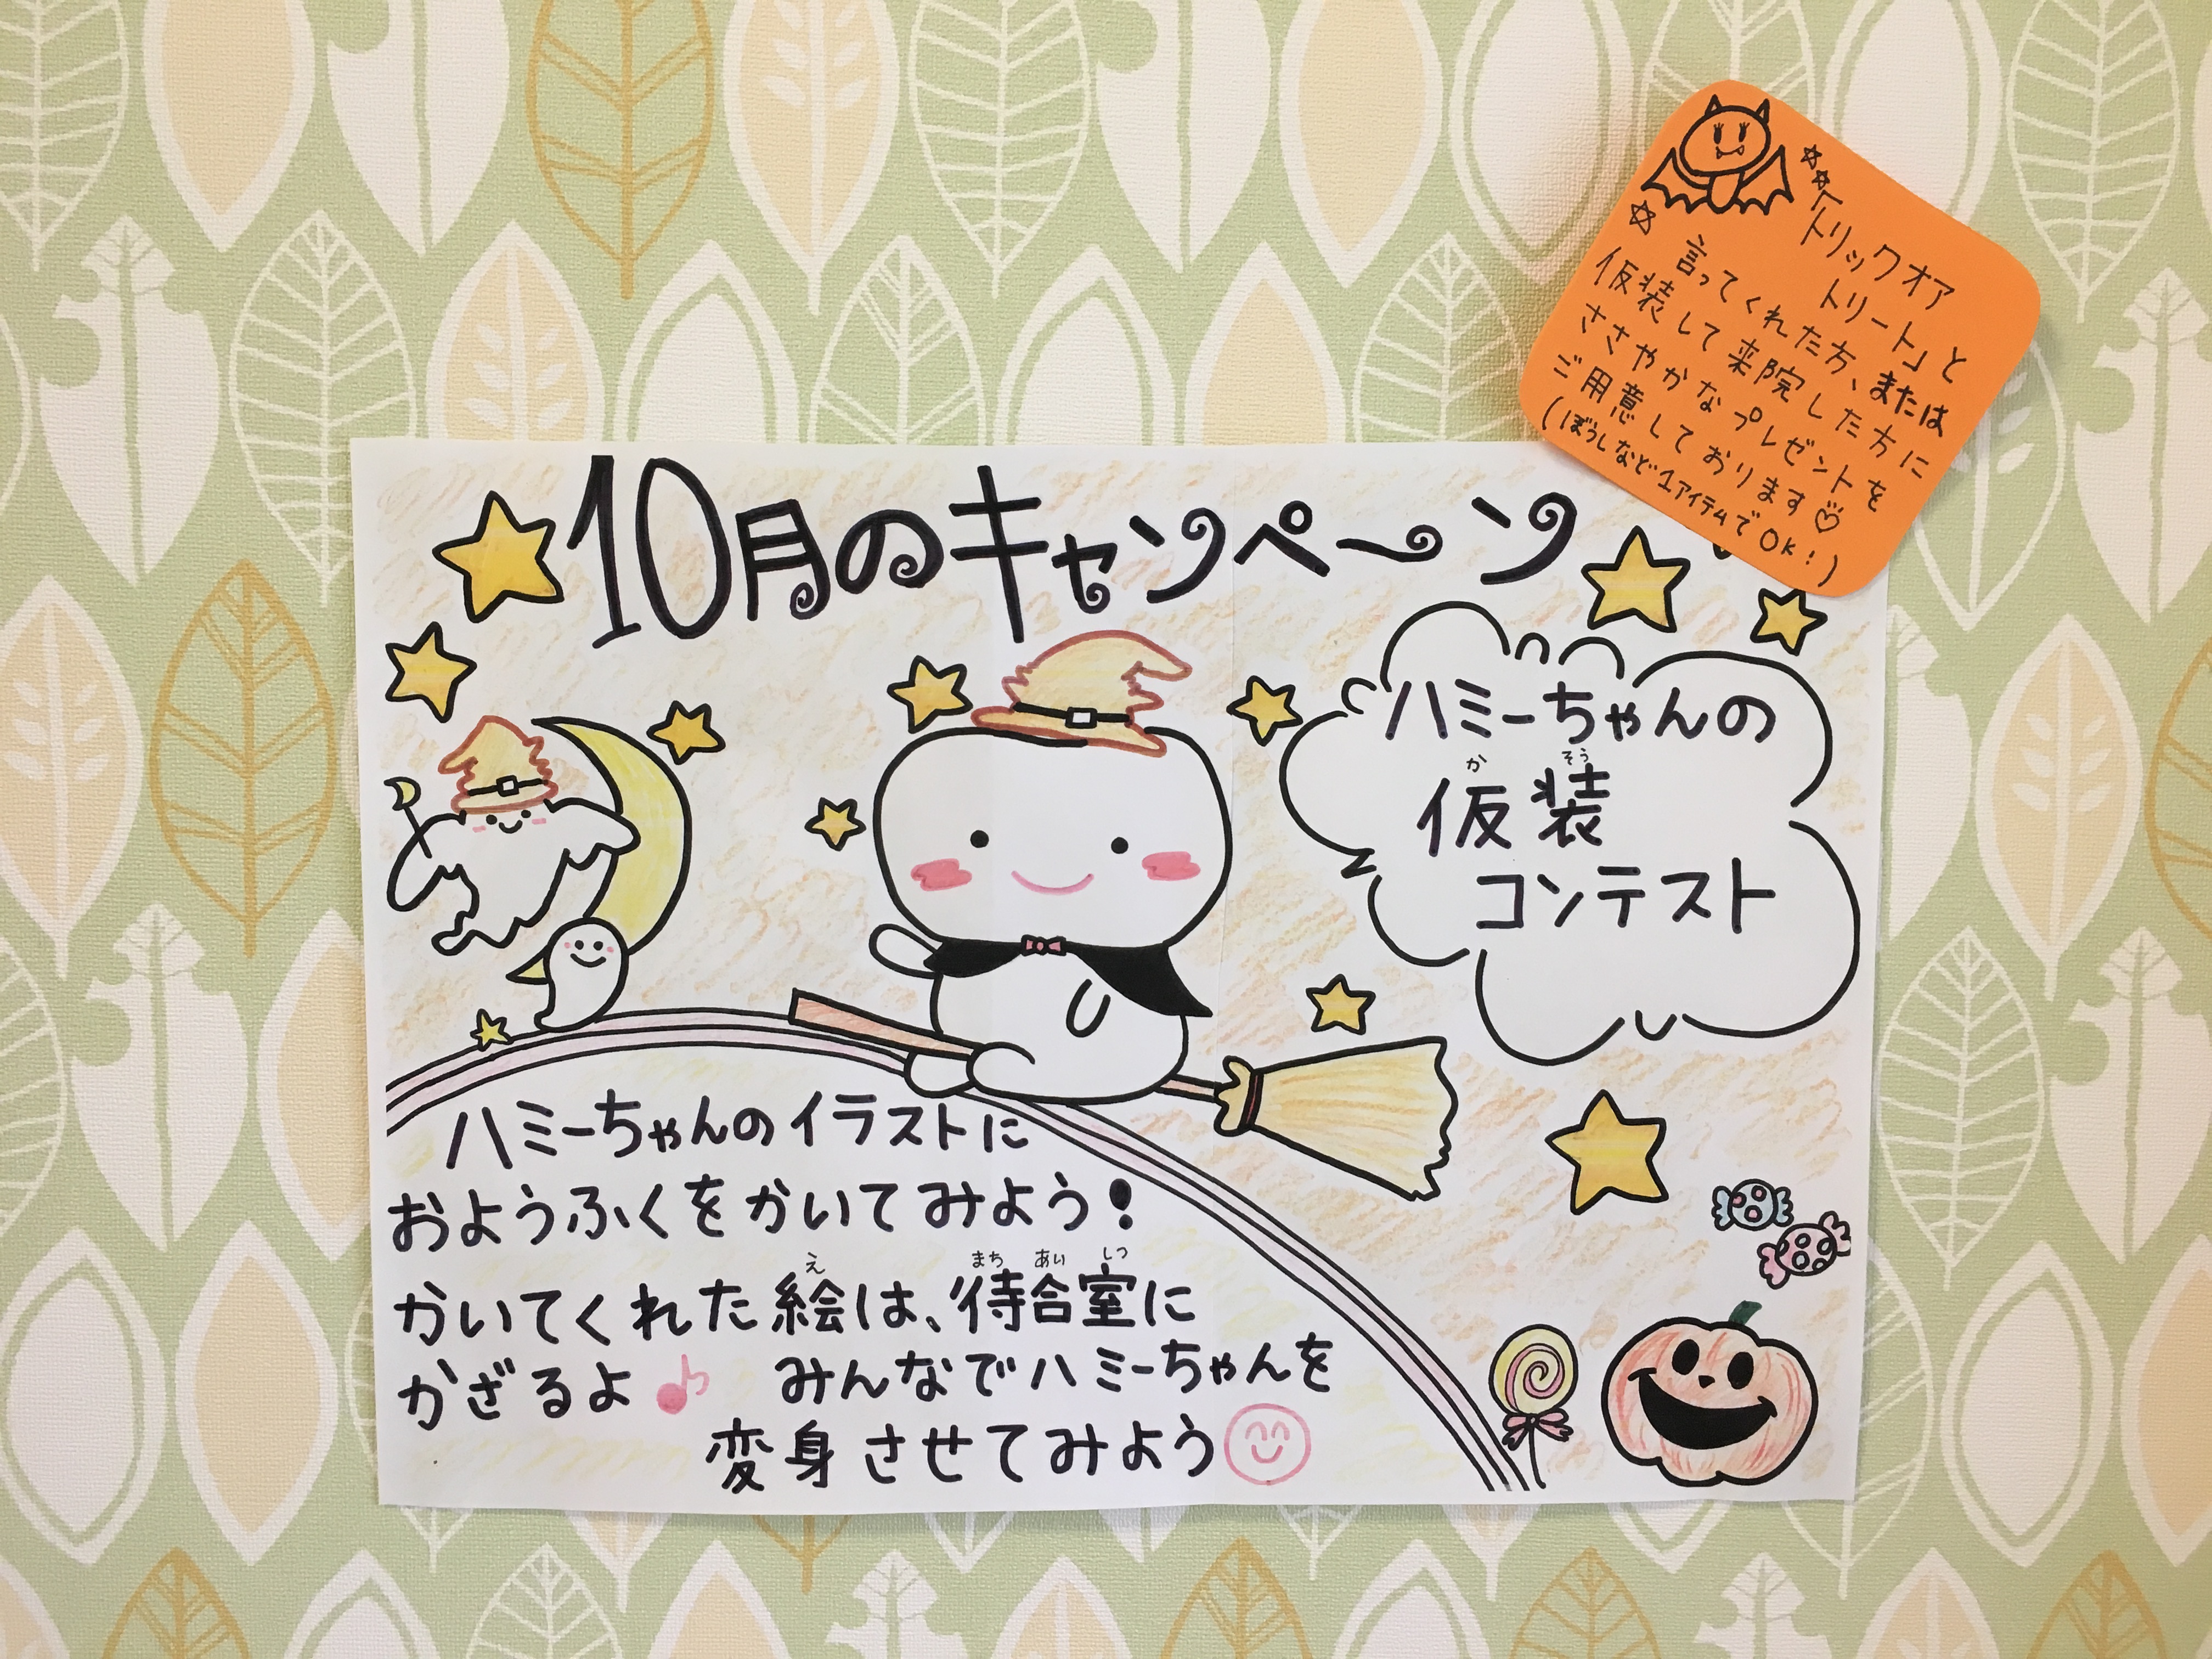 10月のキャンペーン
ハミーちゃんの
仮装
かそう
コンテスト
ハミーちゃんのイラストに
おようふくをかいてみよう!
かいてくれた絵は、待合室に
え まち あい しつ
かざるよ♪ みんなでハミーちゃんを
変身させてみよう
「トリックオア
トリート」と
言ってくれた方、または
仮装して来院した方に
ささやかなプレゼントを
ご用意しております♡
(ぼうしなど1アイテムでOK!)